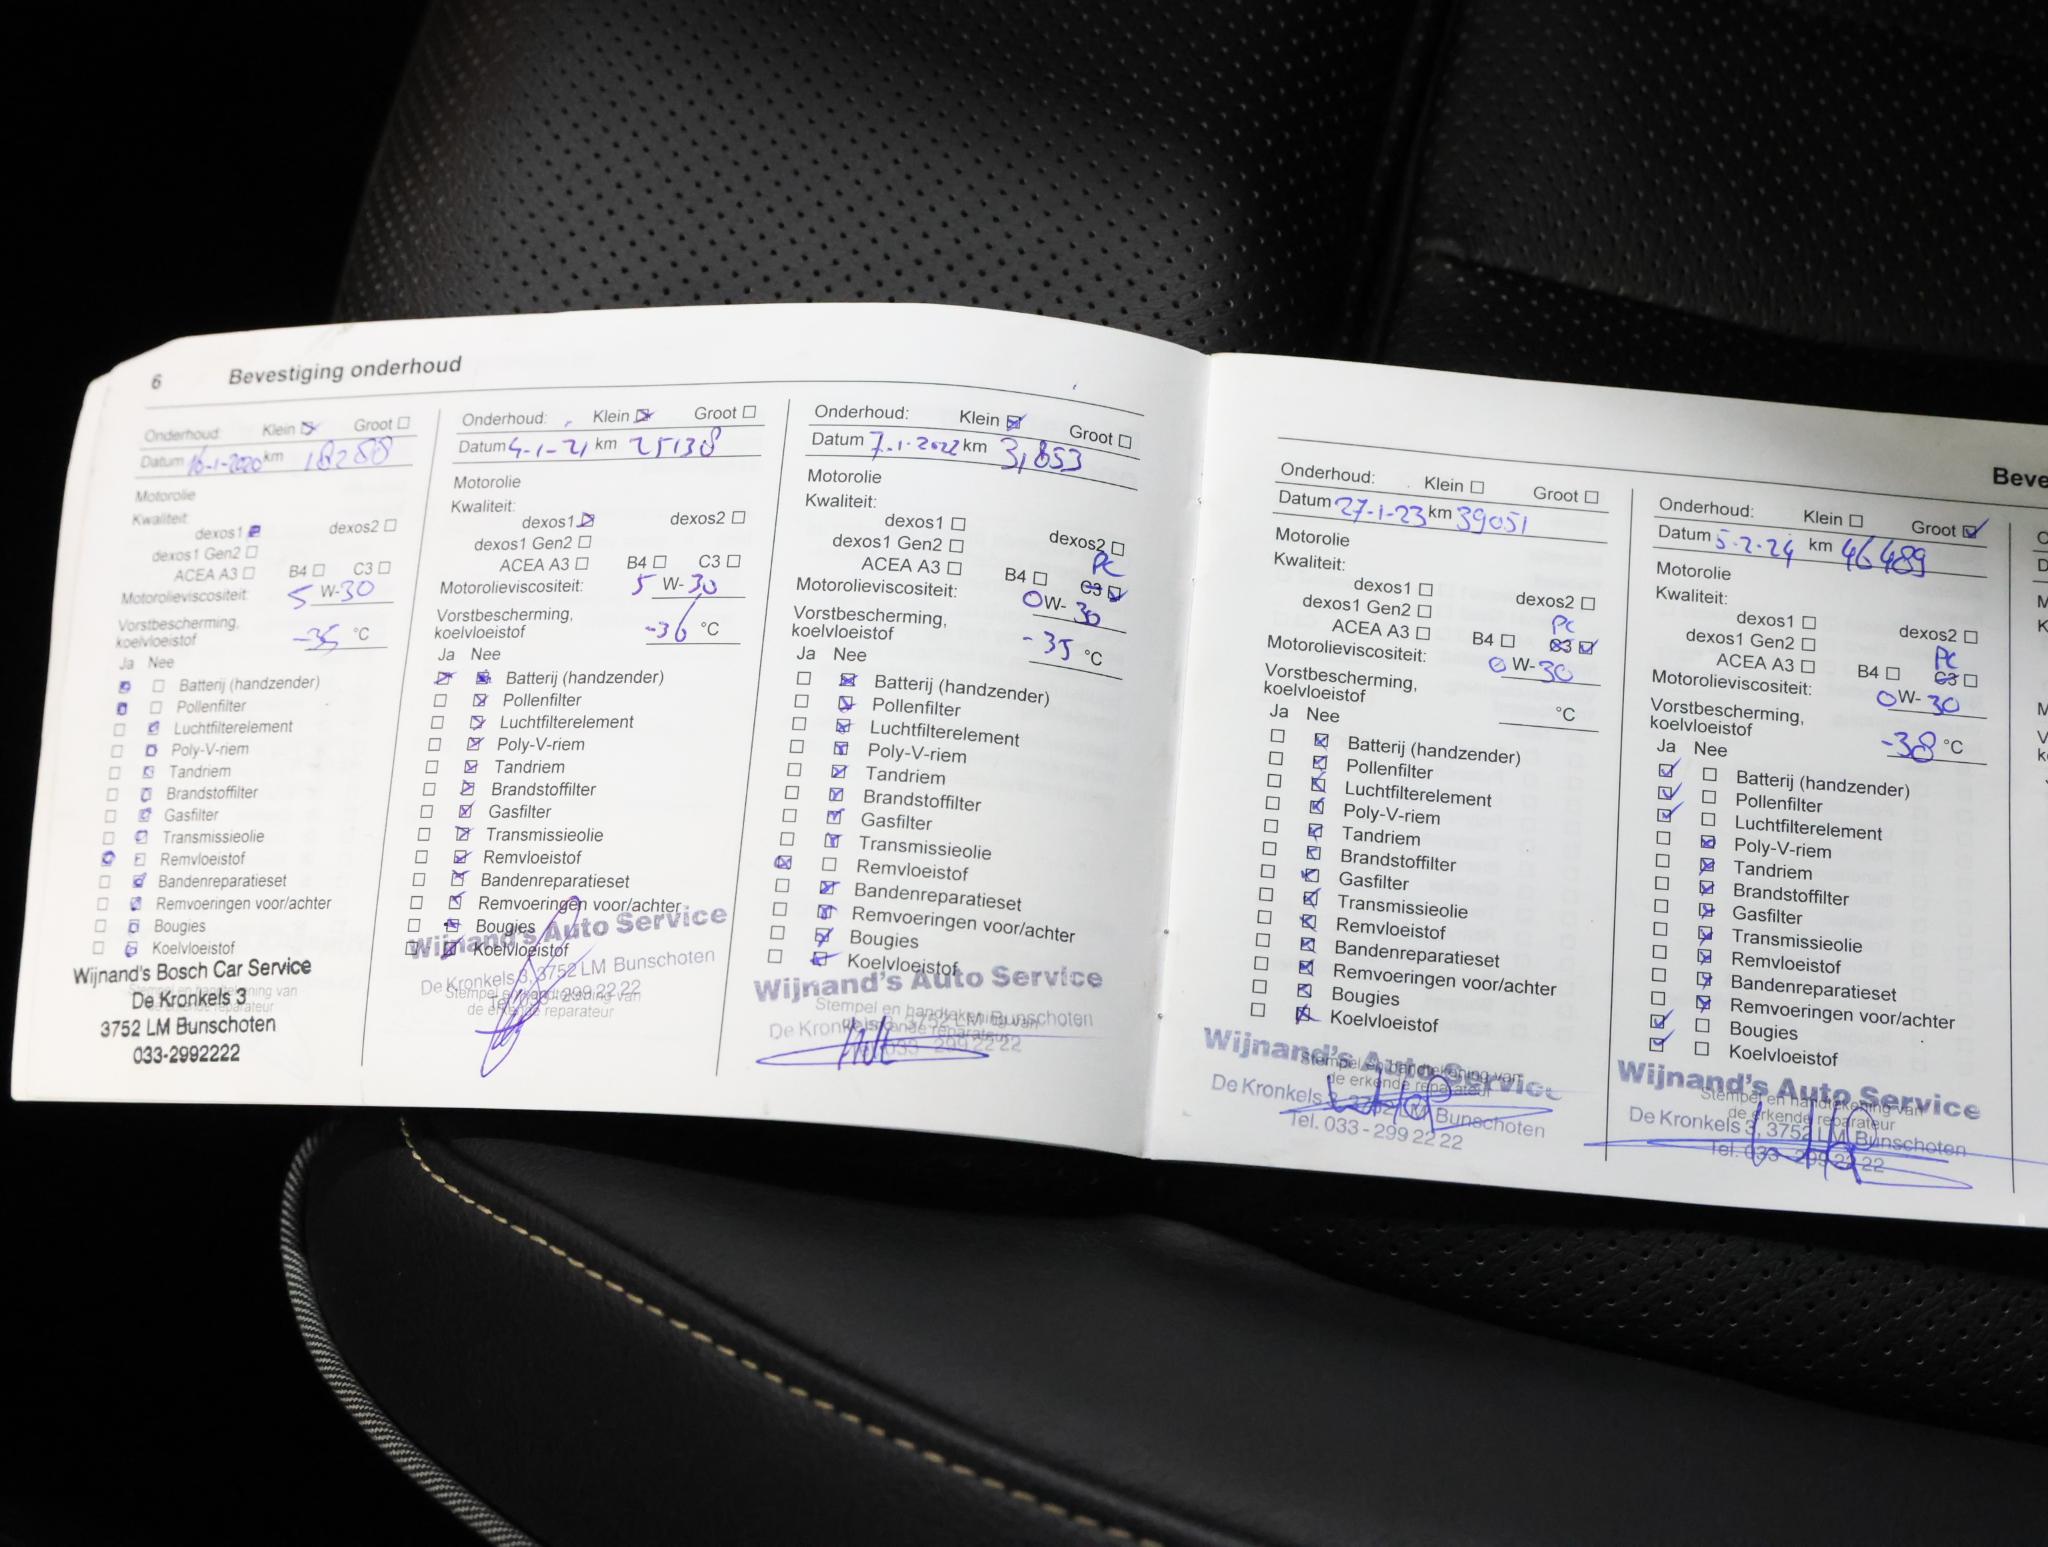 6 Bevestiging onderhoud
Onderhoud: Klein Groot
Datum 16-1-2020 km 18288
Motorolie
Kwaliteit:
dexos1 dexos2
dexos1 Gen2
ACEA A3 B4 C3
Motorolieviscositeit: 5 W-30
Vorstbescherming,
koelvloeistof -35 °C
Ja Nee
Batterij (handzender)
Pollenfilter
Luchtfilterelement
Poly-V-riem
Tandriem
Brandstoffilter
Gasfilter
Transmissieolie
Remvloeistof
Bandenreparatieset
Remvoeringen voor/achter
Bougies
Koelvloeistof
Wijnand's Bosch Car Service
Stempel en handtekening van
De Kronkels 3
de erkende reparateur
3752 LM Bunschoten
033-2992222
Onderhoud: Klein Groot
Datum 4-1-21 km 25138
Motorolie
Kwaliteit:
dexos1 dexos2
dexos1 Gen2
ACEA A3 B4 C3
Motorolieviscositeit: 5 W-30
Vorstbescherming,
koelvloeistof -36 °C
Ja Nee
Batterij (handzender)
Pollenfilter
Luchtfilterelement
Poly-V-riem
Tandriem
Brandstoffilter
Gasfilter
Transmissieolie
Remvloeistof
Bandenreparatieset
Remvoeringen voor/achter
Bougies
Wijnand's Auto Service
Koelvloeistof
De Kronkels 3, 3752 LM Bunschoten
Stempel en handtekening van
Tel. 033 - 299 22 22
de erkende reparateur
Onderhoud: Klein Groot
Datum 7-1-2022 km 31853
Motorolie
Kwaliteit:
dexos1 dexos2
dexos1 Gen2
PC
ACEA A3 B4 C3
Motorolieviscositeit: 0W-30
Vorstbescherming,
koelvloeistof -35 °C
Ja Nee
Batterij (handzender)
Pollenfilter
Luchtfilterelement
Poly-V-riem
Tandriem
Brandstoffilter
Gasfilter
Transmissieolie
Remvloeistof
Bandenreparatieset
Remvoeringen voor/achter
Bougies
Koelvloeistof
Wijnand's Auto Service
Stempel en handtekening van
De Kronkels 3, 3752 LM Bunschoten
de erkende reparateur
Tel. 033 - 299 22 22
Beve
Onderhoud: Klein Groot
Datum 27-1-23 km 39051
Motorolie
Kwaliteit:
dexos1 dexos2
dexos1 Gen2
PC
ACEA A3 B4 C3
Motorolieviscositeit: 0 W-30
Vorstbescherming,
koelvloeistof °C
Ja Nee
Batterij (handzender)
Pollenfilter
Luchtfilterelement
Poly-V-riem
Tandriem
Brandstoffilter
Gasfilter
Transmissieolie
Remvloeistof
Bandenreparatieset
Remvoeringen voor/achter
Bougies
Koelvloeistof
Wijnand's Auto Service
Stempel en handtekening van
de erkende reparateur
De Kronkels 3, 3752 LM Bunschoten
Tel. 033 - 299 22 22
Onderhoud: Klein Groot
Datum 5-2-24 km 46489
Motorolie
Kwaliteit:
dexos1 dexos2
dexos1 Gen2
PC
ACEA A3 B4 C3
Motorolieviscositeit: 0W-30
Vorstbescherming,
koelvloeistof -38 °C
Ja Nee
Batterij (handzender)
Pollenfilter
Luchtfilterelement
Poly-V-riem
Tandriem
Brandstoffilter
Gasfilter
Transmissieolie
Remvloeistof
Bandenreparatieset
Remvoeringen voor/achter
Bougies
Koelvloeistof
Wijnand's Auto Service
Stempel en handtekening van
de erkende reparateur
De Kronkels 3, 3752 LM Bunschoten
Tel. 033 - 299 22 22